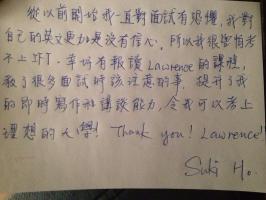 從以前開始我一直對面試有恐懼,我對
自己的英文能力是沒有信心,所以我很害怕考
不上JFT,幸好有報讀Lawrence的課程,
教了很多面試時該注意的事,提升了我
的即時寫作和講談能力,令我可以考上
理想的大學! Thank you! Lawrence!
Suki Ho.